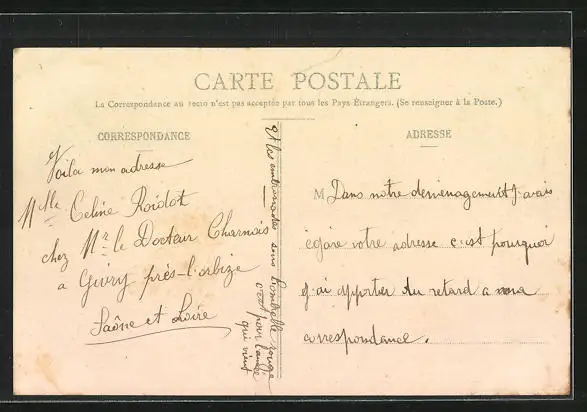 CARTE POSTALE
La Correspondance au recto n'est pas acceptée par tous les Pays Etrangers. (Se renseigner à la Poste.)
CORRESPONDANCE
Voila mon adresse
Mlle Celine Roidot
chez Mr le Docteur Charnois
a Givry près-l'orbize
Saône et Loire
Et les embrassades sous l'ombrelle rouge
c'est pour l'année
qui vient
ADRESSE
M Dans notre demenagement j'avais
égaré votre adresse c'est pourquoi
j'ai apporter du retard a ma
correspondance.